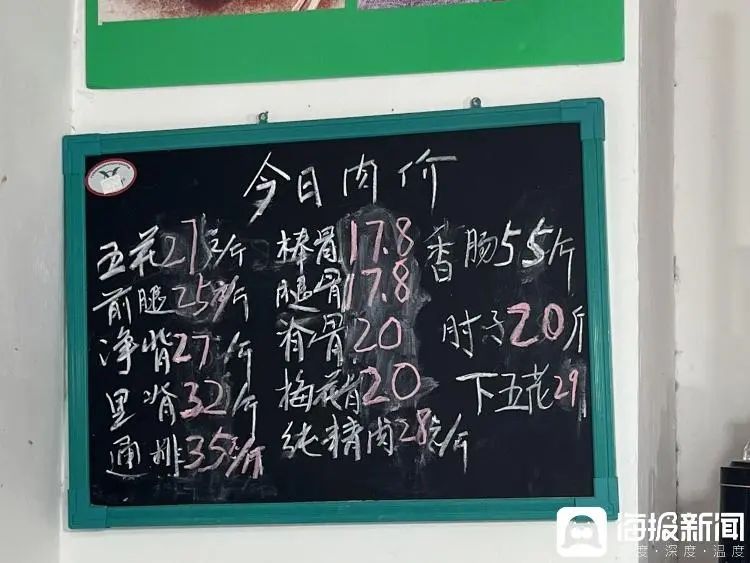 今日肉价
五花27元/斤
前腿25元/斤
净脊27/斤
里脊32/斤
通排35元/斤
棒骨17.8
腿骨17.8
脊骨20
梅花肉20
纯精肉28元/斤
香肠55斤
肘子20斤
下五花29
海报新闻
度·深度·温度